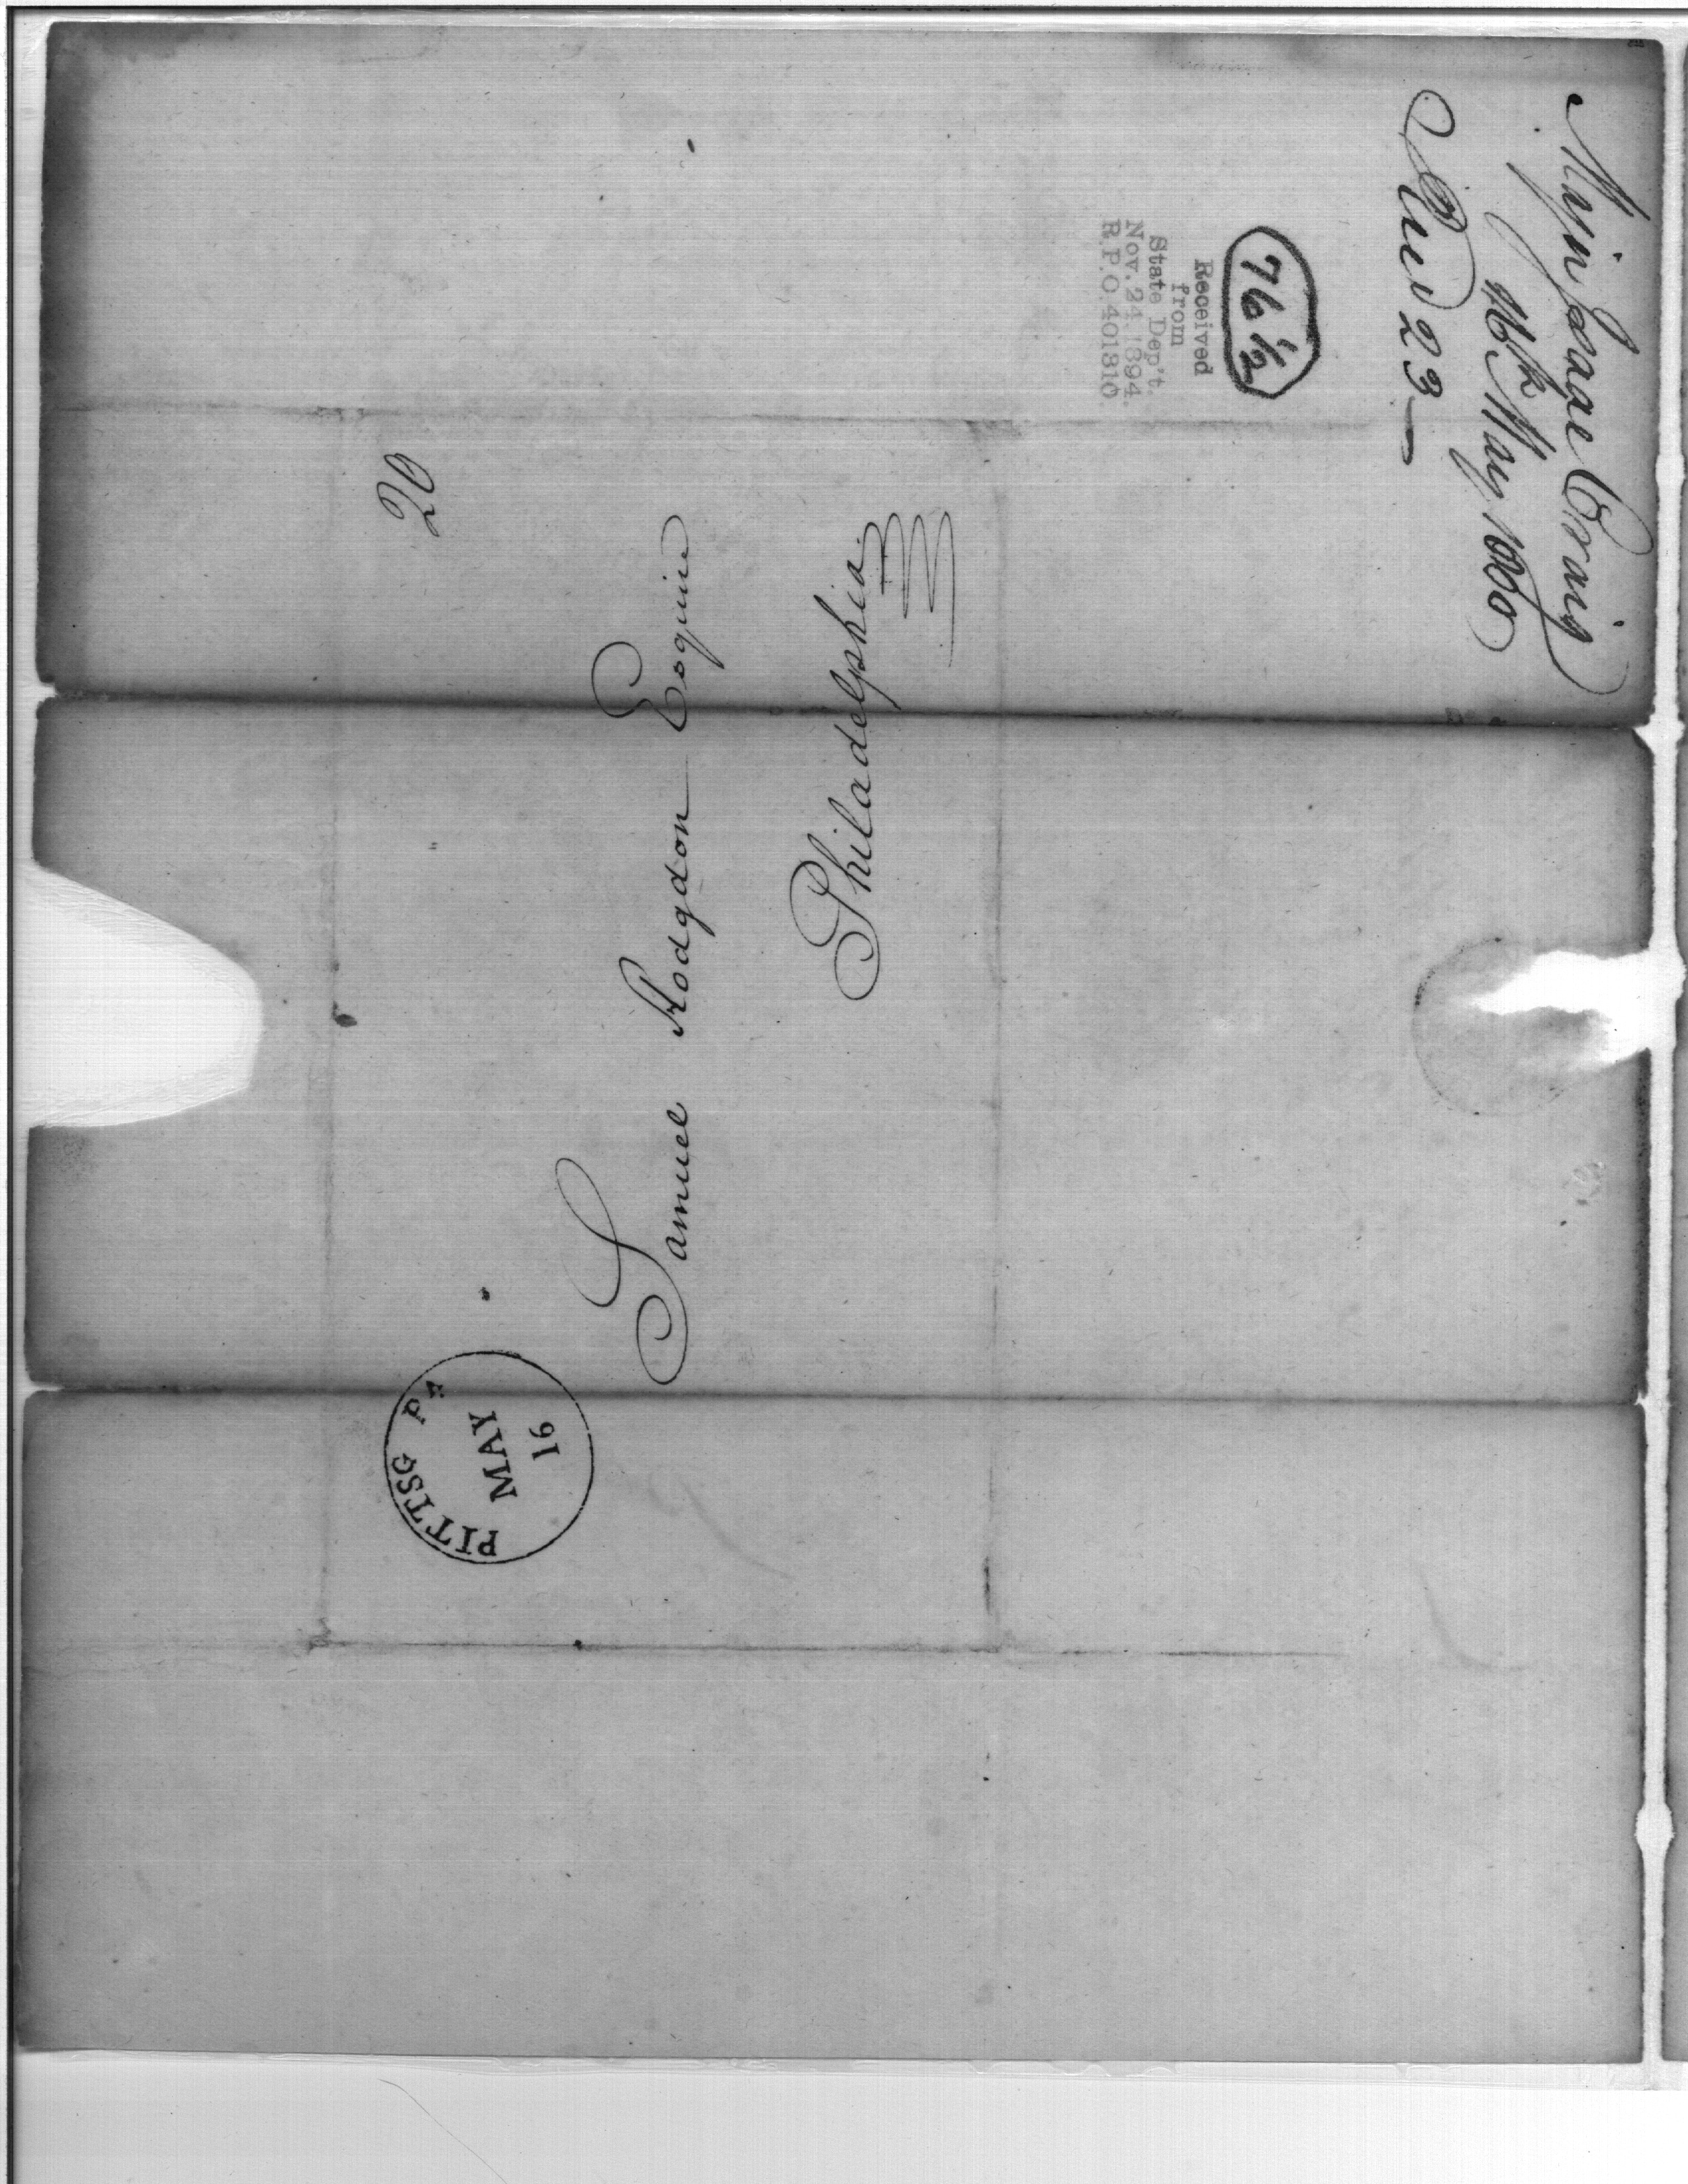 Major Isaac Craig
16th May 1800
Recd 23 —
76 1/2
Received
from
State Dep't.
Nov. 24, 1894.
R.P.O. 401810.
20
Samuel Hodgdon Esquire
Philadelphia
PITTSG PA
MAY
16